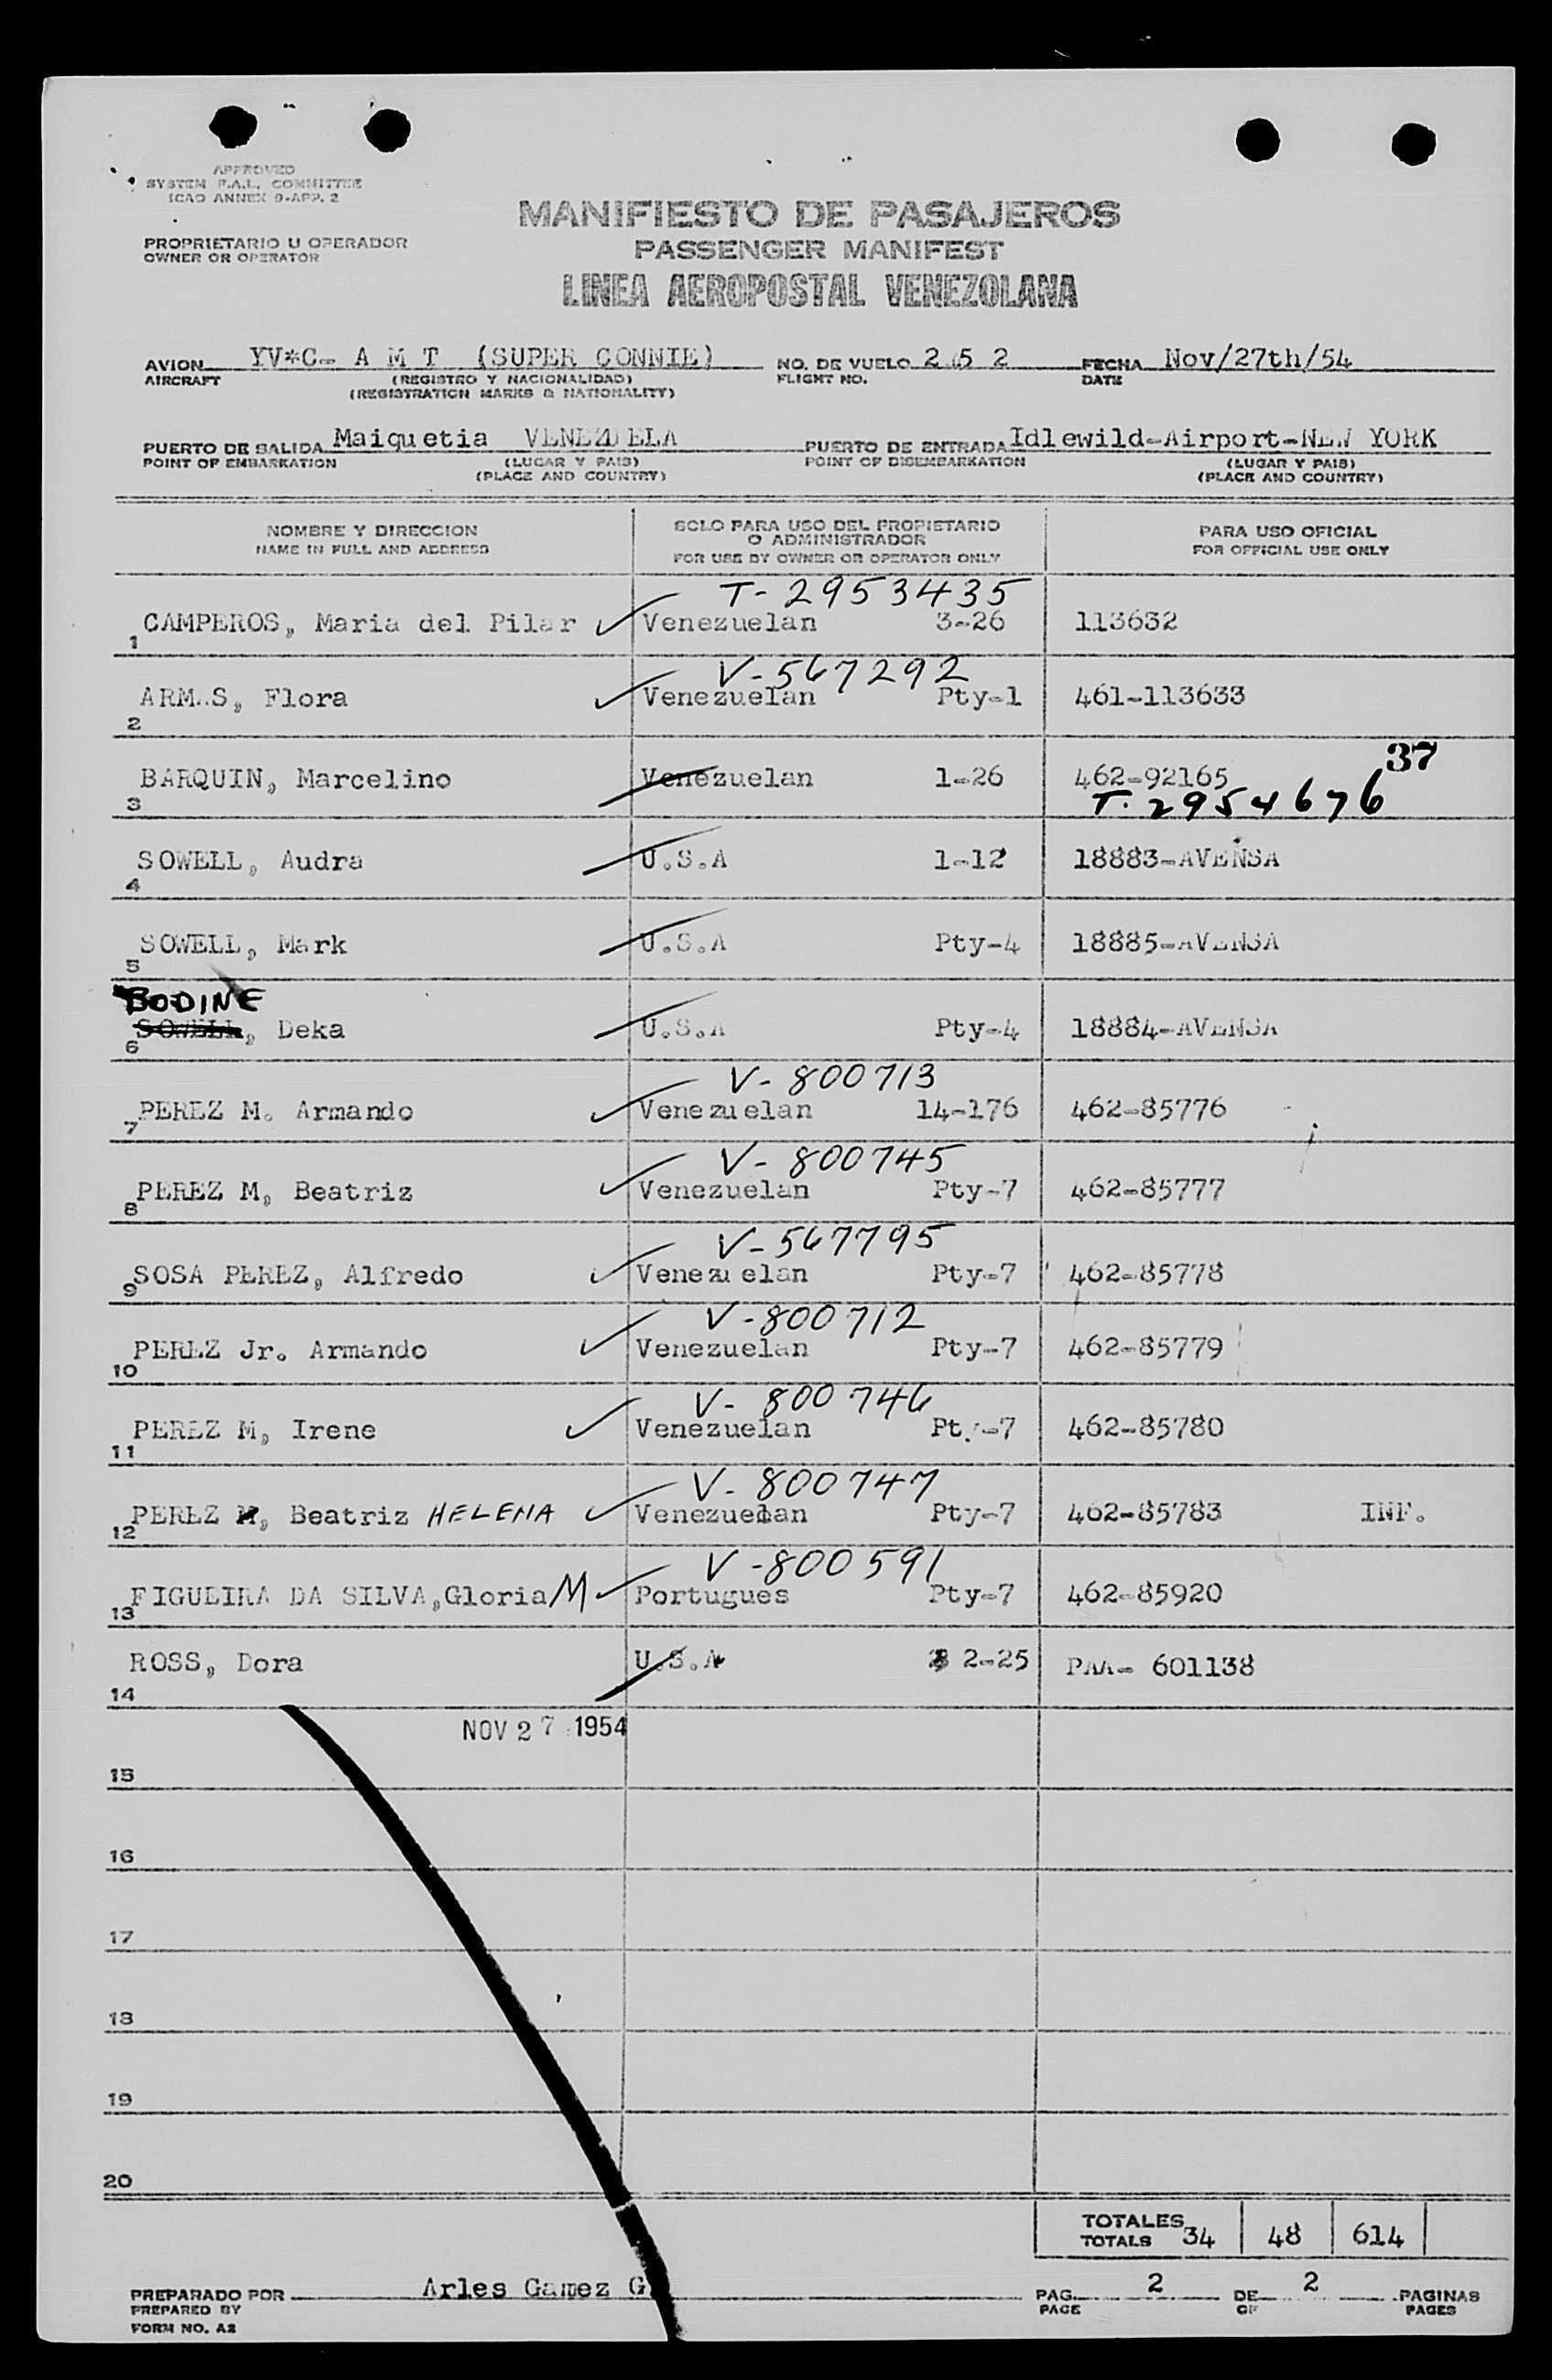 APPROVED
SYSTEM F.A.L. COMMITTEE
ICAO ANNEX 9-APP. 2
PROPRIETARIO U OPERADOR
OWNER OR OPERATOR
MANIFIESTO DE PASAJEROS
PASSENGER MANIFEST
LINEA AEROPOSTAL VENEZOLANA
AVION YV*C- A M T (SUPER CONNIE) NO. DE VUELO 2 5 2 FECHA Nov/27th/54
AIRCRAFT (REGISTRO Y NACIONALIDAD) FLIGHT NO. DATE
(REGISTRATION MARKS & NATIONALITY)
PUERTO DE SALIDA Maiquetia VENEZUELA PUERTO DE ENTRADA Idlewild-Airport-NEW YORK
POINT OF EMBARKATION (LUGAR Y PAIS) POINT OF DISEMBARKATION (LUGAR Y PAIS)
(PLACE AND COUNTRY) (PLACE AND COUNTRY)
NOMBRE Y DIRECCION SOLO PARA USO DEL PROPIETARIO PARA USO OFICIAL
O ADMINISTRADOR
NAME IN FULL AND ADDRESS FOR USE BY OWNER OR OPERATOR ONLY FOR OFFICIAL USE ONLY
T-2953435
1 CAMPEROS, Maria del Pilar Venezuelan 3-26 113632
V-567292
2 ARM..S, Flora Venezuelan Pty-1 461-113633
37
3 BARQUIN, Marcelino Venezuelan 1-26 462-92165
T-2954676
4 SOWELL, Audra U.S.A 1-12 18883-AVENSA
5 SOWELL, Mark U.S.A Pty-4 18885-AVENSA
BODINE
6 SOWELL, Deka U.S.A Pty-4 18884-AVENSA
V-800713
7 PEREZ M. Armando Venezuelan 14-176 462-85776
V-800745
8 PEREZ M, Beatriz Venezuelan Pty-7 462-85777
V-567795
9 SOSA PEREZ, Alfredo Venezuelan Pty-7 462-85778
V-800712
10 PEREZ Jr. Armando Venezuelan Pty-7 462-85779
V-800746
11 PEREZ M, Irene Venezuelan Pty-7 462-85780
V-800747
12 PEREZ M, Beatriz HELENA Venezuelan Pty-7 462-85783 INF.
V-800591
13 FIGUEIRA DA SILVA,Gloria M Portugues Pty-7 462-85920
14 ROSS, Dora U.S.A 2-25 PAA- 601138
NOV 27 1954
15
16
17
18
19
20
TOTALES 34 48 614
TOTALS
PREPARADO POR Arles Gamez G. PAG. 2 DE 2 PAGINAS
PREPARED BY PAGE OF PAGES
FORM NO. A2